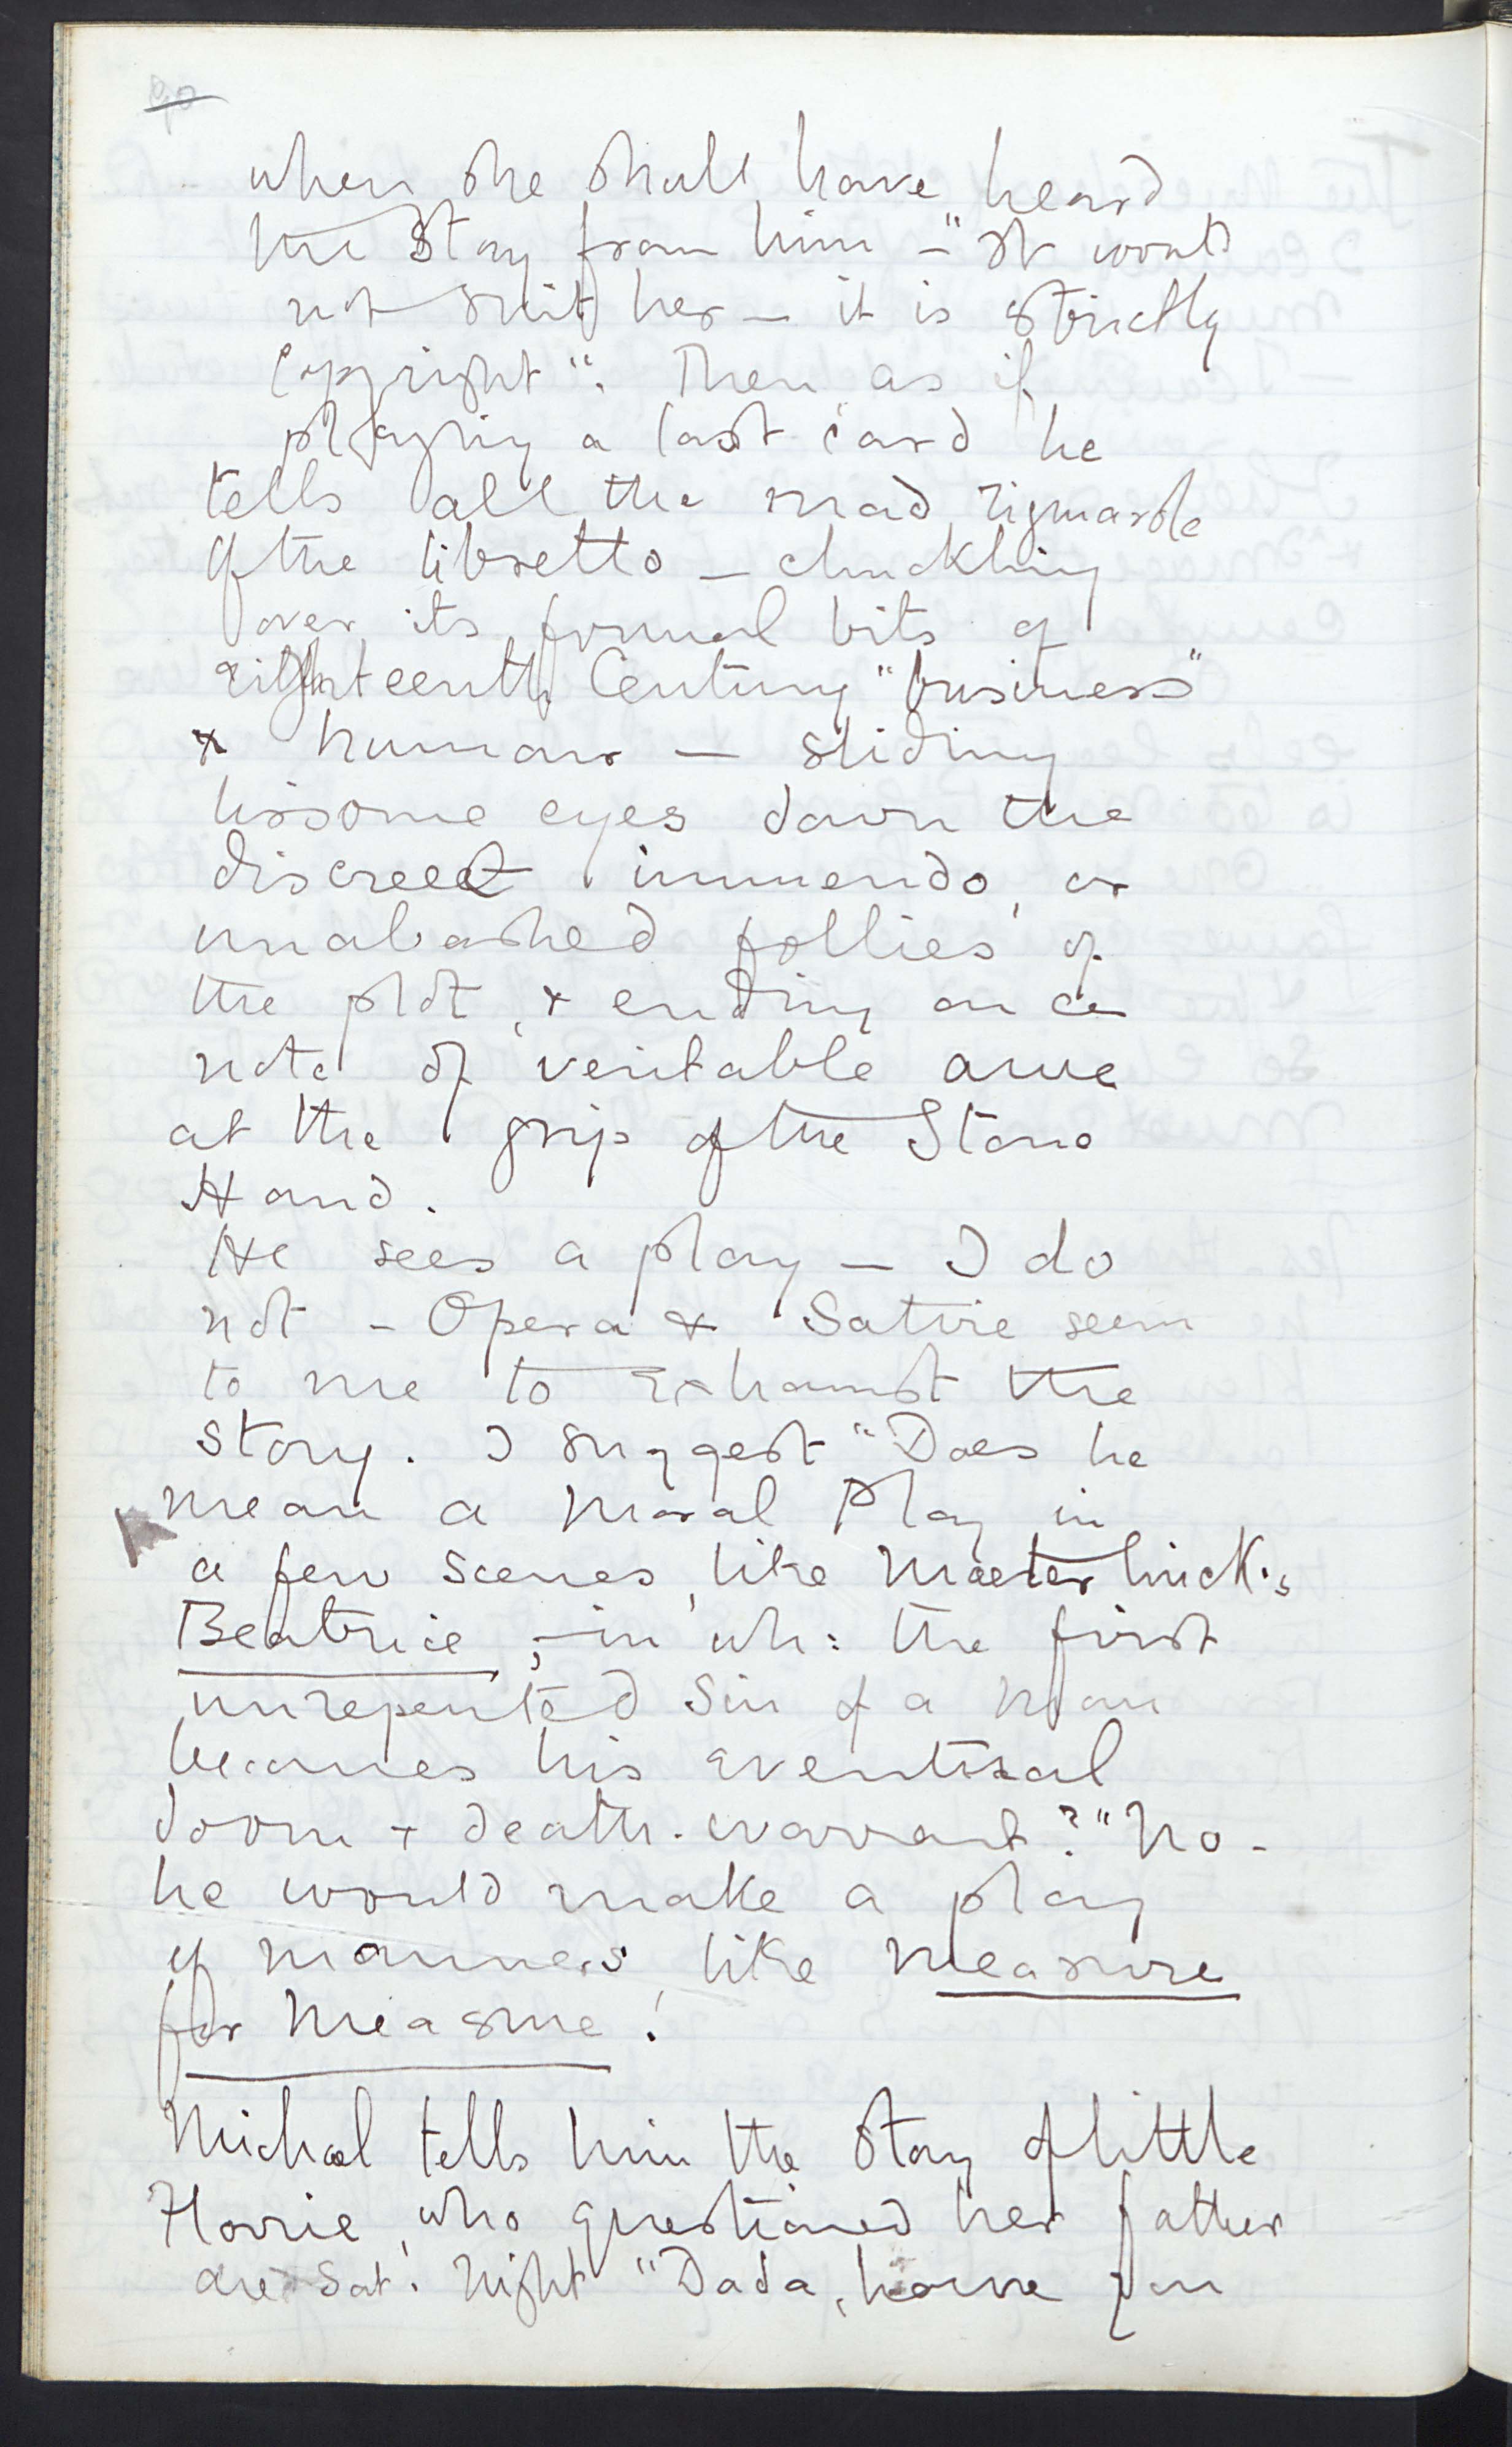 when she shall have heard
the Story from him – "It would
not suit her – it is strictly
Copyright". Then as if
playing a last card he
tells all the mad rigmarole
of the libretto – chuckling
over its formal bits of
Eighteenth Century "business"
& humour – sliding
lissome eyes down the
discreet innuendo, or
unabashed follies of
the plot, & ending on a
note of veritable awe
at the grip of the Stone
Hand.
He sees a play – I do
not – Opera & Satire seem
to me to exhaust the
story. I suggest "Does he
mean a Moral Play in
a few scenes, like Maeterlinck's
Beatrice; – in wh: the first
unrepented Sin of a Man
becomes his eventual
doom & death-warrant?" No –
he would make a play
of manners like Measure
for Measure!
Michael tells him the Story of little
Florrie, who questioned her father
one Sat. Night "Dada, have you